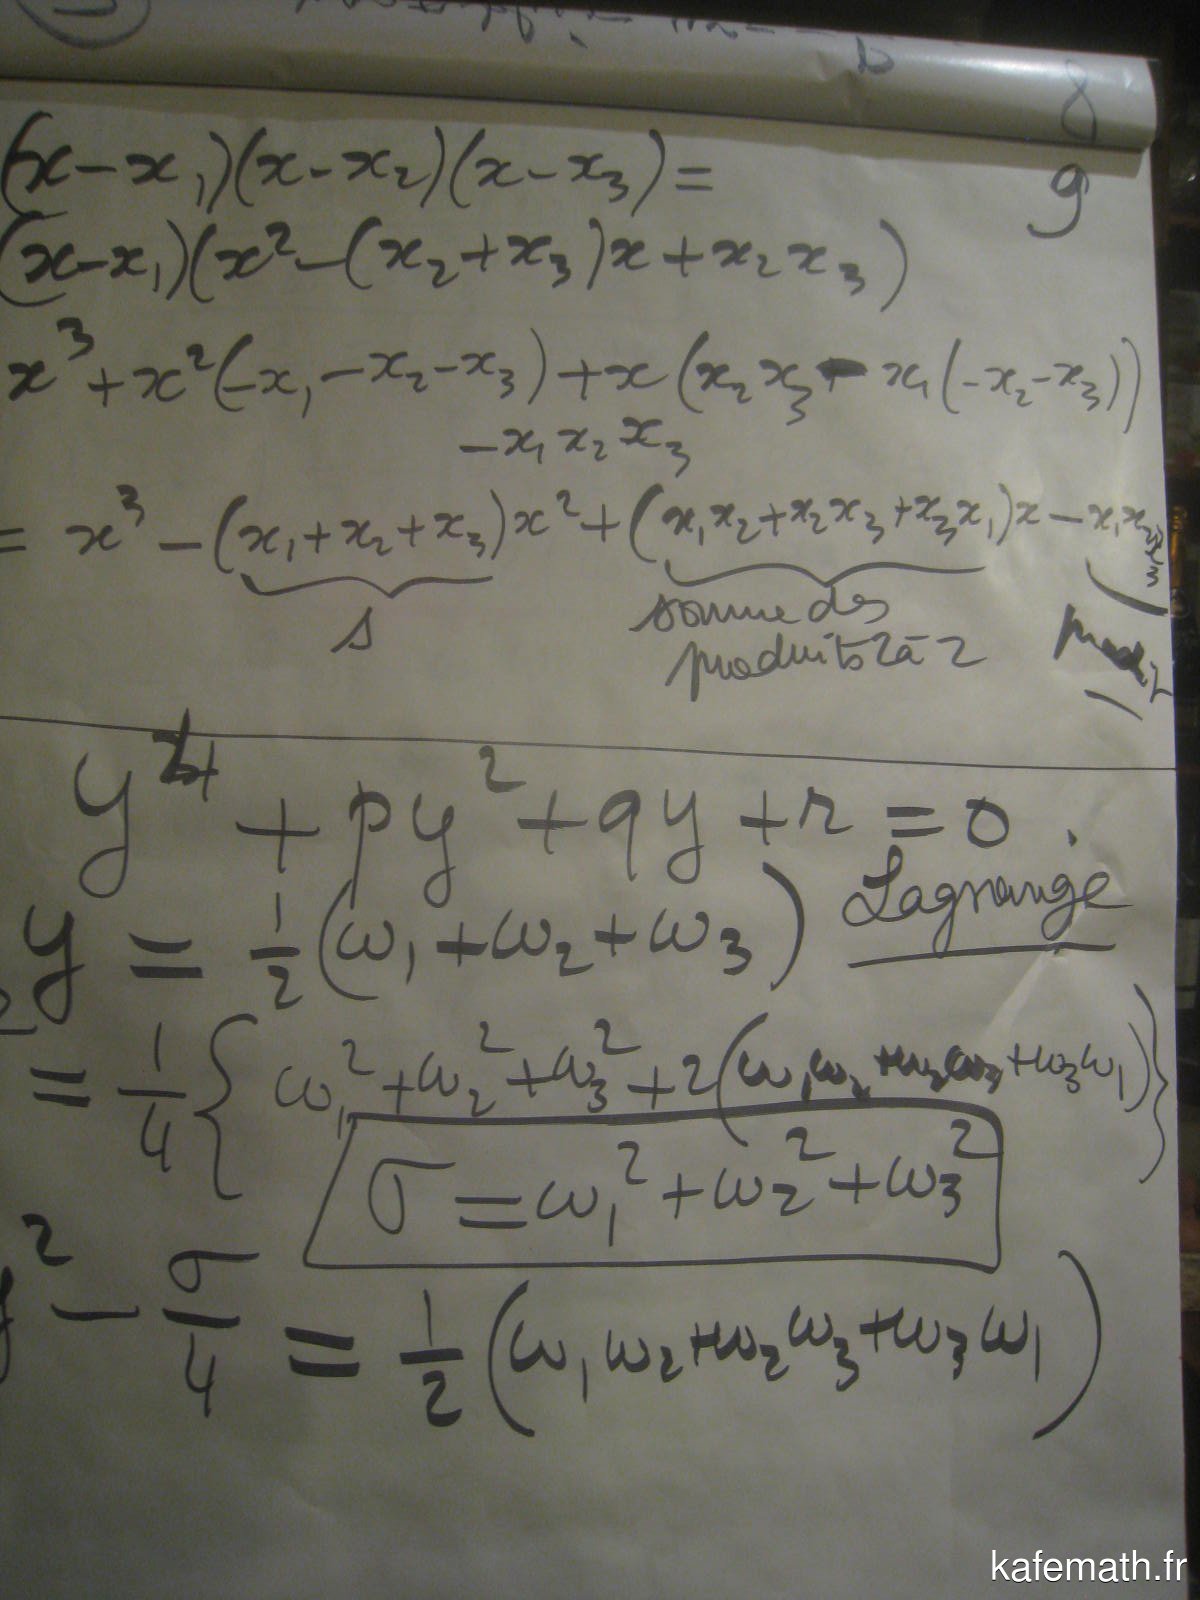 8
9
(x-x₁)(x-x₂)(x-x₃)=
(x-x₁)(x²-(x₂+x₃)x+x₂x₃)
x³+x²(-x₁-x₂-x₃)+x(x₂x₃-x₁(-x₂-x₃))
-x₁x₂x₃
= x³-(x₁+x₂+x₃)x²+(x₁x₂+x₂x₃+x₃x₁)x-x₁x₂x₃
s
somme des
produits 2 à 2
y⁴+py²+qy+r=0.
Lagrange
y=½(ω₁+ω₂+ω₃)
=¼{ω₁²+ω₂²+ω₃²+2(ω₁ω₂+ω₂ω₃+ω₃ω₁)}
σ=ω₁²+ω₂²+ω₃²
y²-σ/4=½(ω₁ω₂+ω₂ω₃+ω₃ω₁)
kafemath.fr